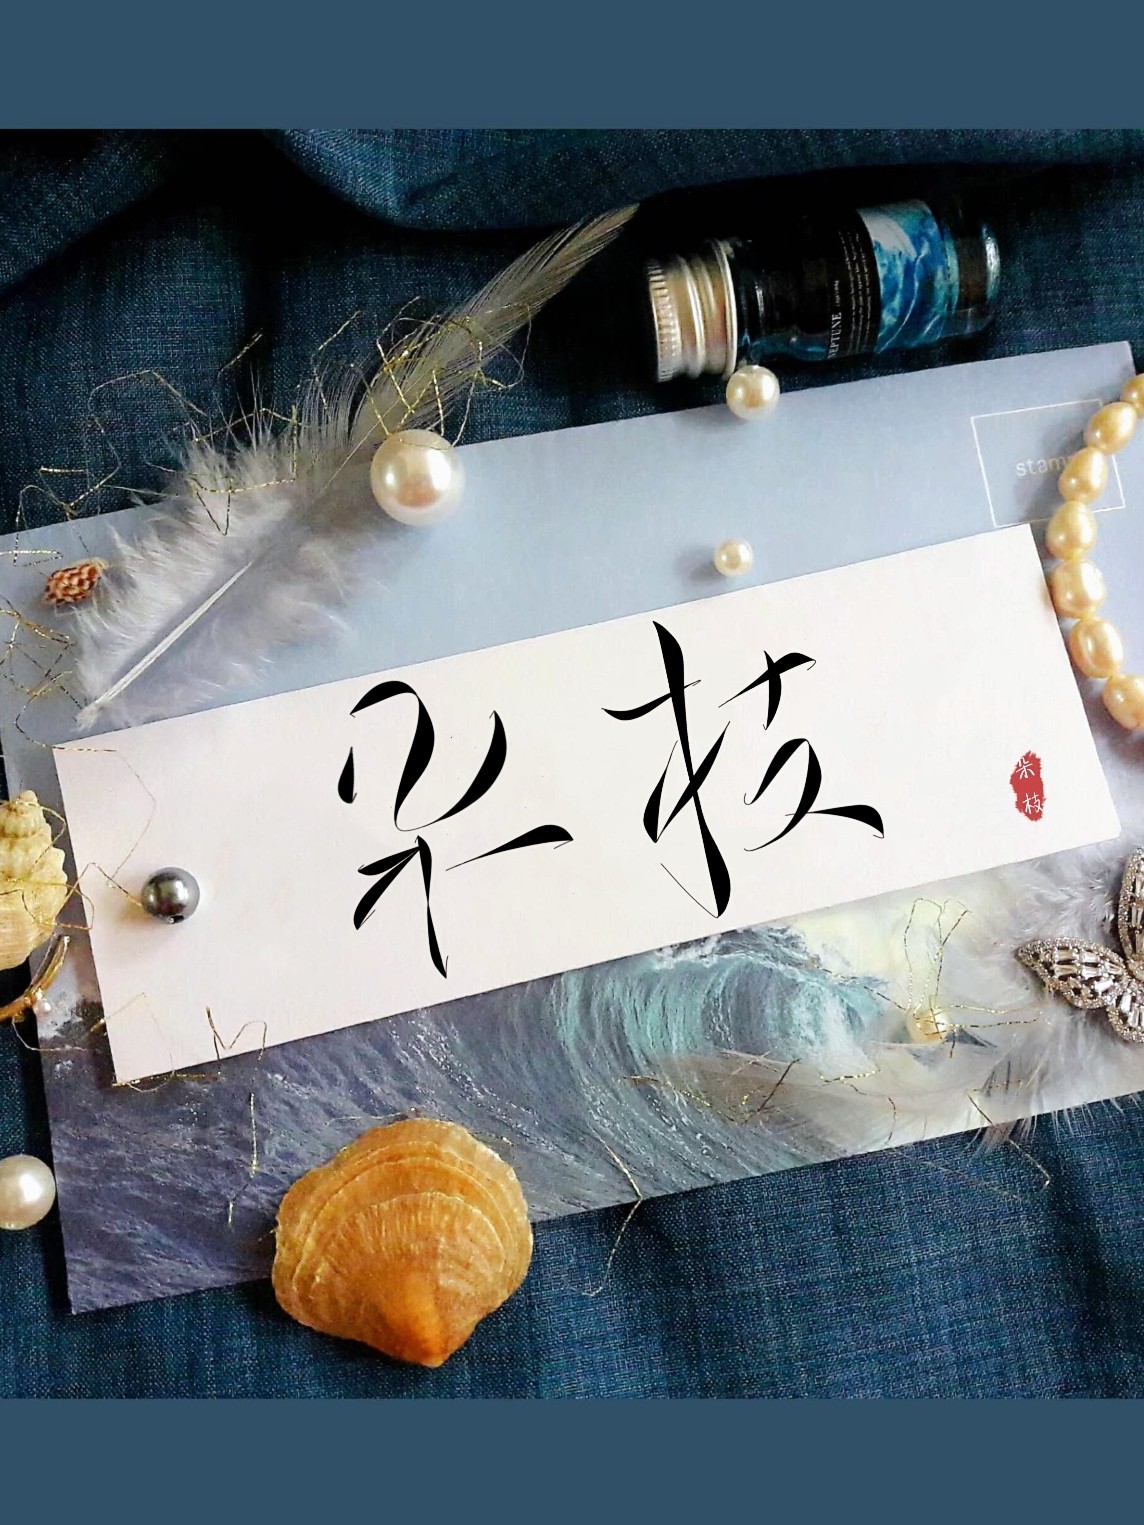 NEPTUNE
stamp
朵枝
朵
枝